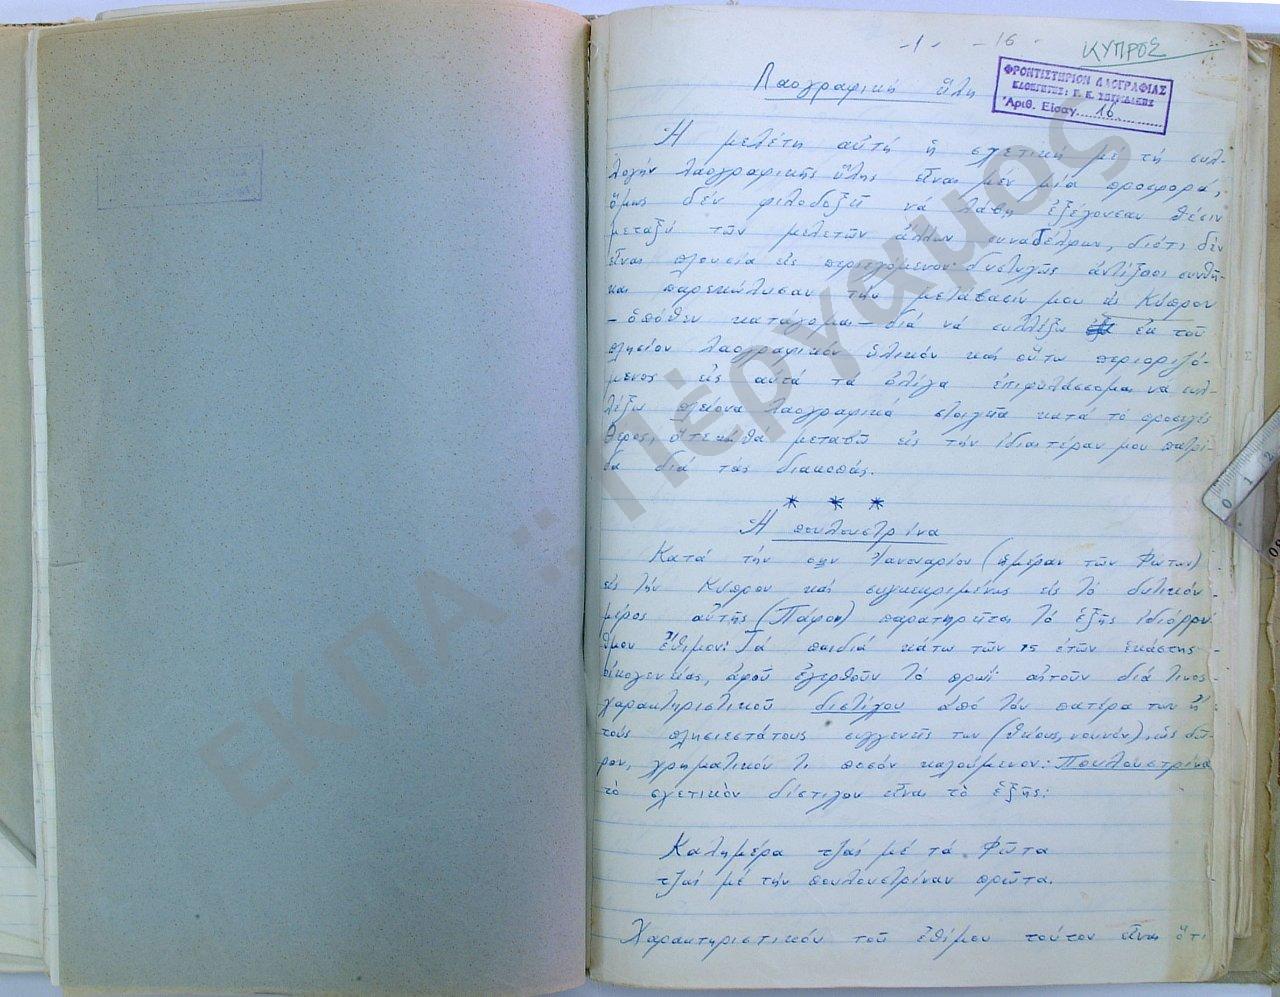 -1- -16-
ΚΥΠΡΟΣ
ΦΡΟΝΤΙΣΤΗΡΙΟΝ ΛΑΟΓΡΑΦΙΑΣ
ΚΑΘΗΓΗΤΗΣ: Γ. Κ. ΣΠΥΡΙΔΑΚΗΣ
Ἀριθ. Εἰσαγ. 16
Λαογραφική ὕλη
Ἡ μελέτη αὐτή ἡ σχετική με τή συλ-
λογήν λαογραφικῆς ὕλης εἶναι μέν μία προσφορά,
ὅμως δέν φιλοδοξεῖ νά λάβῃ ἐξέχουσαν θέσιν
μεταξύ τῶν μελετῶν ἄλλων συναδέλφων, διότι δέν
εἶναι πλουσία εἰς περιεχόμενον· δυστυχῶς ἀντίξοοι συνθῆ-
και παρεκώλυσαν τήν μετάβασίν μου εἰς Κύπρον
- ὁπόθεν κατάγομαι - διά νά συλλέξω ἐκ τοῦ
πλησίον λαογραφικόν ὑλικόν καί οὕτω περιοριζό-
μενος εἰς αὐτά τά ὀλίγα ἐπιφυλάσσομαι νά συλ-
λέξω πλείονα λαογραφικά στοιχεῖα κατά τό προσεχές
θέρος, ὅτε καί θά μεταβῶ εἰς τήν ἰδιαιτέραν μου πατρί-
δα διά τάς διακοπάς.
* * *
Ἡ πουλουστρίνα
Κατά τήν 6ην Ἰανουαρίου (ἡμέραν τῶν Φώτων)
εἰς τήν Κύπρον καί συγκεκριμένως εἰς τό δυτικόν
μέρος αὐτῆς (Πάφον) παρατηρεῖται τό ἑξῆς ἰδιόρρυ-
θμον ἔθιμον: Τά παιδιά κάτω τῶν 15 ἐτῶν ἑκάστης
οἰκογενείας, ἀφοῦ ἐγερθοῦν τό πρωί αἰτοῦν διά τινος
χαρακτηριστικοῦ διστίχου ἀπό τόν πατέρα των ἤ
τούς πλησιεστάτους συγγενεῖς των (θείους, νουνόν), ὡς δῶ-
ρον, χρηματικόν τι ποσόν καλούμενον: Πουλουστρίνα
τὸ σχετικὸν δίστιχον εἶναι τὸ ἑξῆς:
Καλημέρα τζαί μέ τά Φῶτα
τζαί μέ τήν πουλουστρίναν πρῶτα.
Χαρακτηριστικόν τοῦ ἐθίμου τούτου εἶναι ὅτι
ΕΚΠΑ :: Πέργαμος